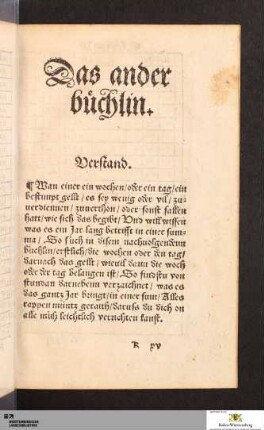 Das ander
büchlin.
Verstand.
¶ Wan einer ein wochen/ oder ein tag/ ein
bestimpt gellt/ es sey wenig oder vil/ zu=
uerdiennen/ zuuerthon/ oder sonst fallen
hatt/ wie sich das begibt/ Vnd will wissen
was es ein Jar lang betrifft in einer sum=
ma/ So such in disem nachuolgendenn
büchlin/ erstlich/ die wochen oder den tag/
darnach das gellt/ wieuil dann die woch
oder der tag belangen ist/ So findstu von
stundan darnebenn verzeichnet/ was es
das gantz Jar bringt/ in einer sum/ Alles
rappen müntz gerait/ daruff du dich on
alle müh leichtlich verrichten kanst.
K
Baden-Württemberg